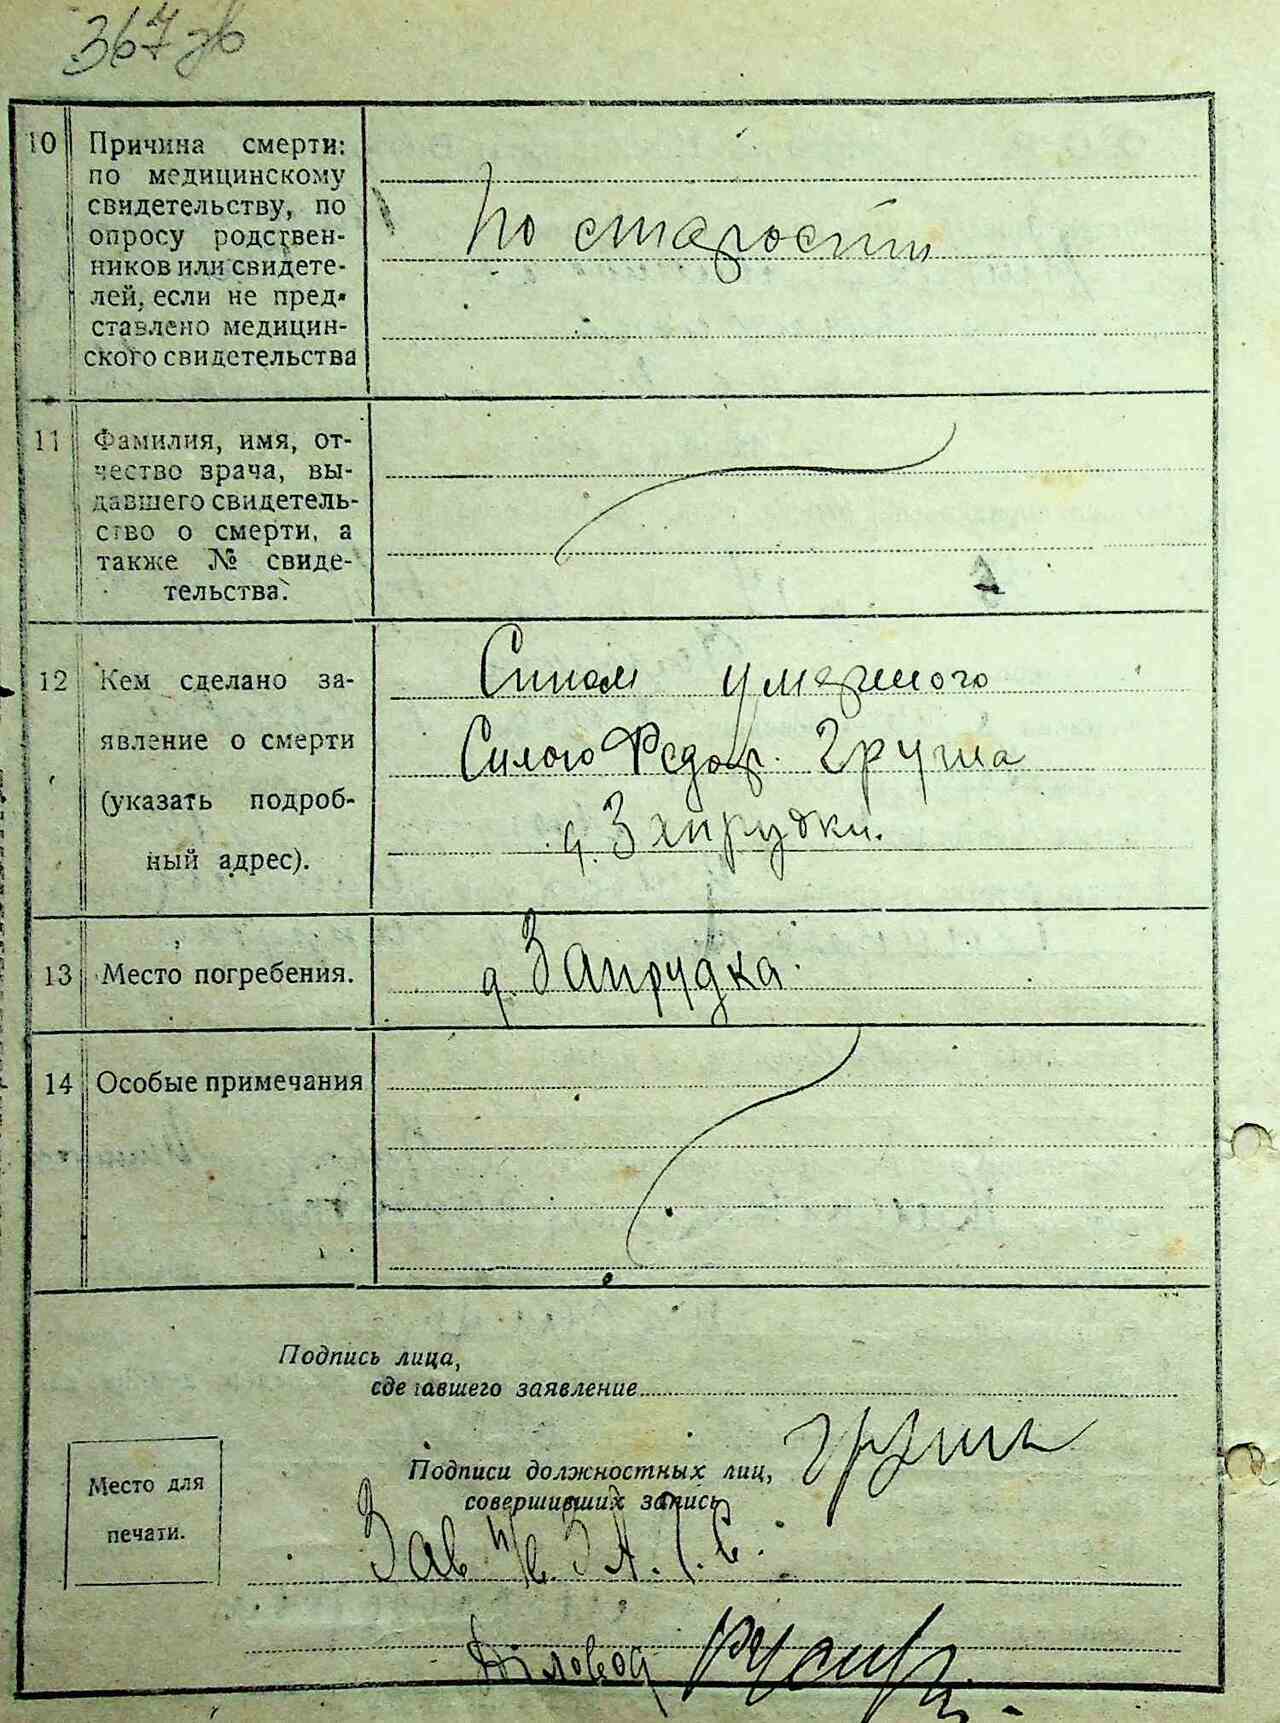 367 зв
10 Причина смерти:
по медицинскому
свидетельству, по
опросу родствен-
ников или свидете-
лей, если не пред-
ставлено медицин-
ского свидетельства
по старости
11 Фамилия, имя, от-
чество врача, вы-
давшего свидетель-
ство о смерти, а
также № свиде-
тельства.
12 Кем сделано за-
явление о смерти
(указать подроб-
ный адрес).
Сином умершого
Федор. Груша
д. Запрудки.
13 Место погребения.
д. Запрудка.
14 Особые примечания
Подпись лица,
сделавшего заявление
Подписи должностных лиц,
совершивших запись
Зав З.А.Г.С.
Діловод
Место для
печати.